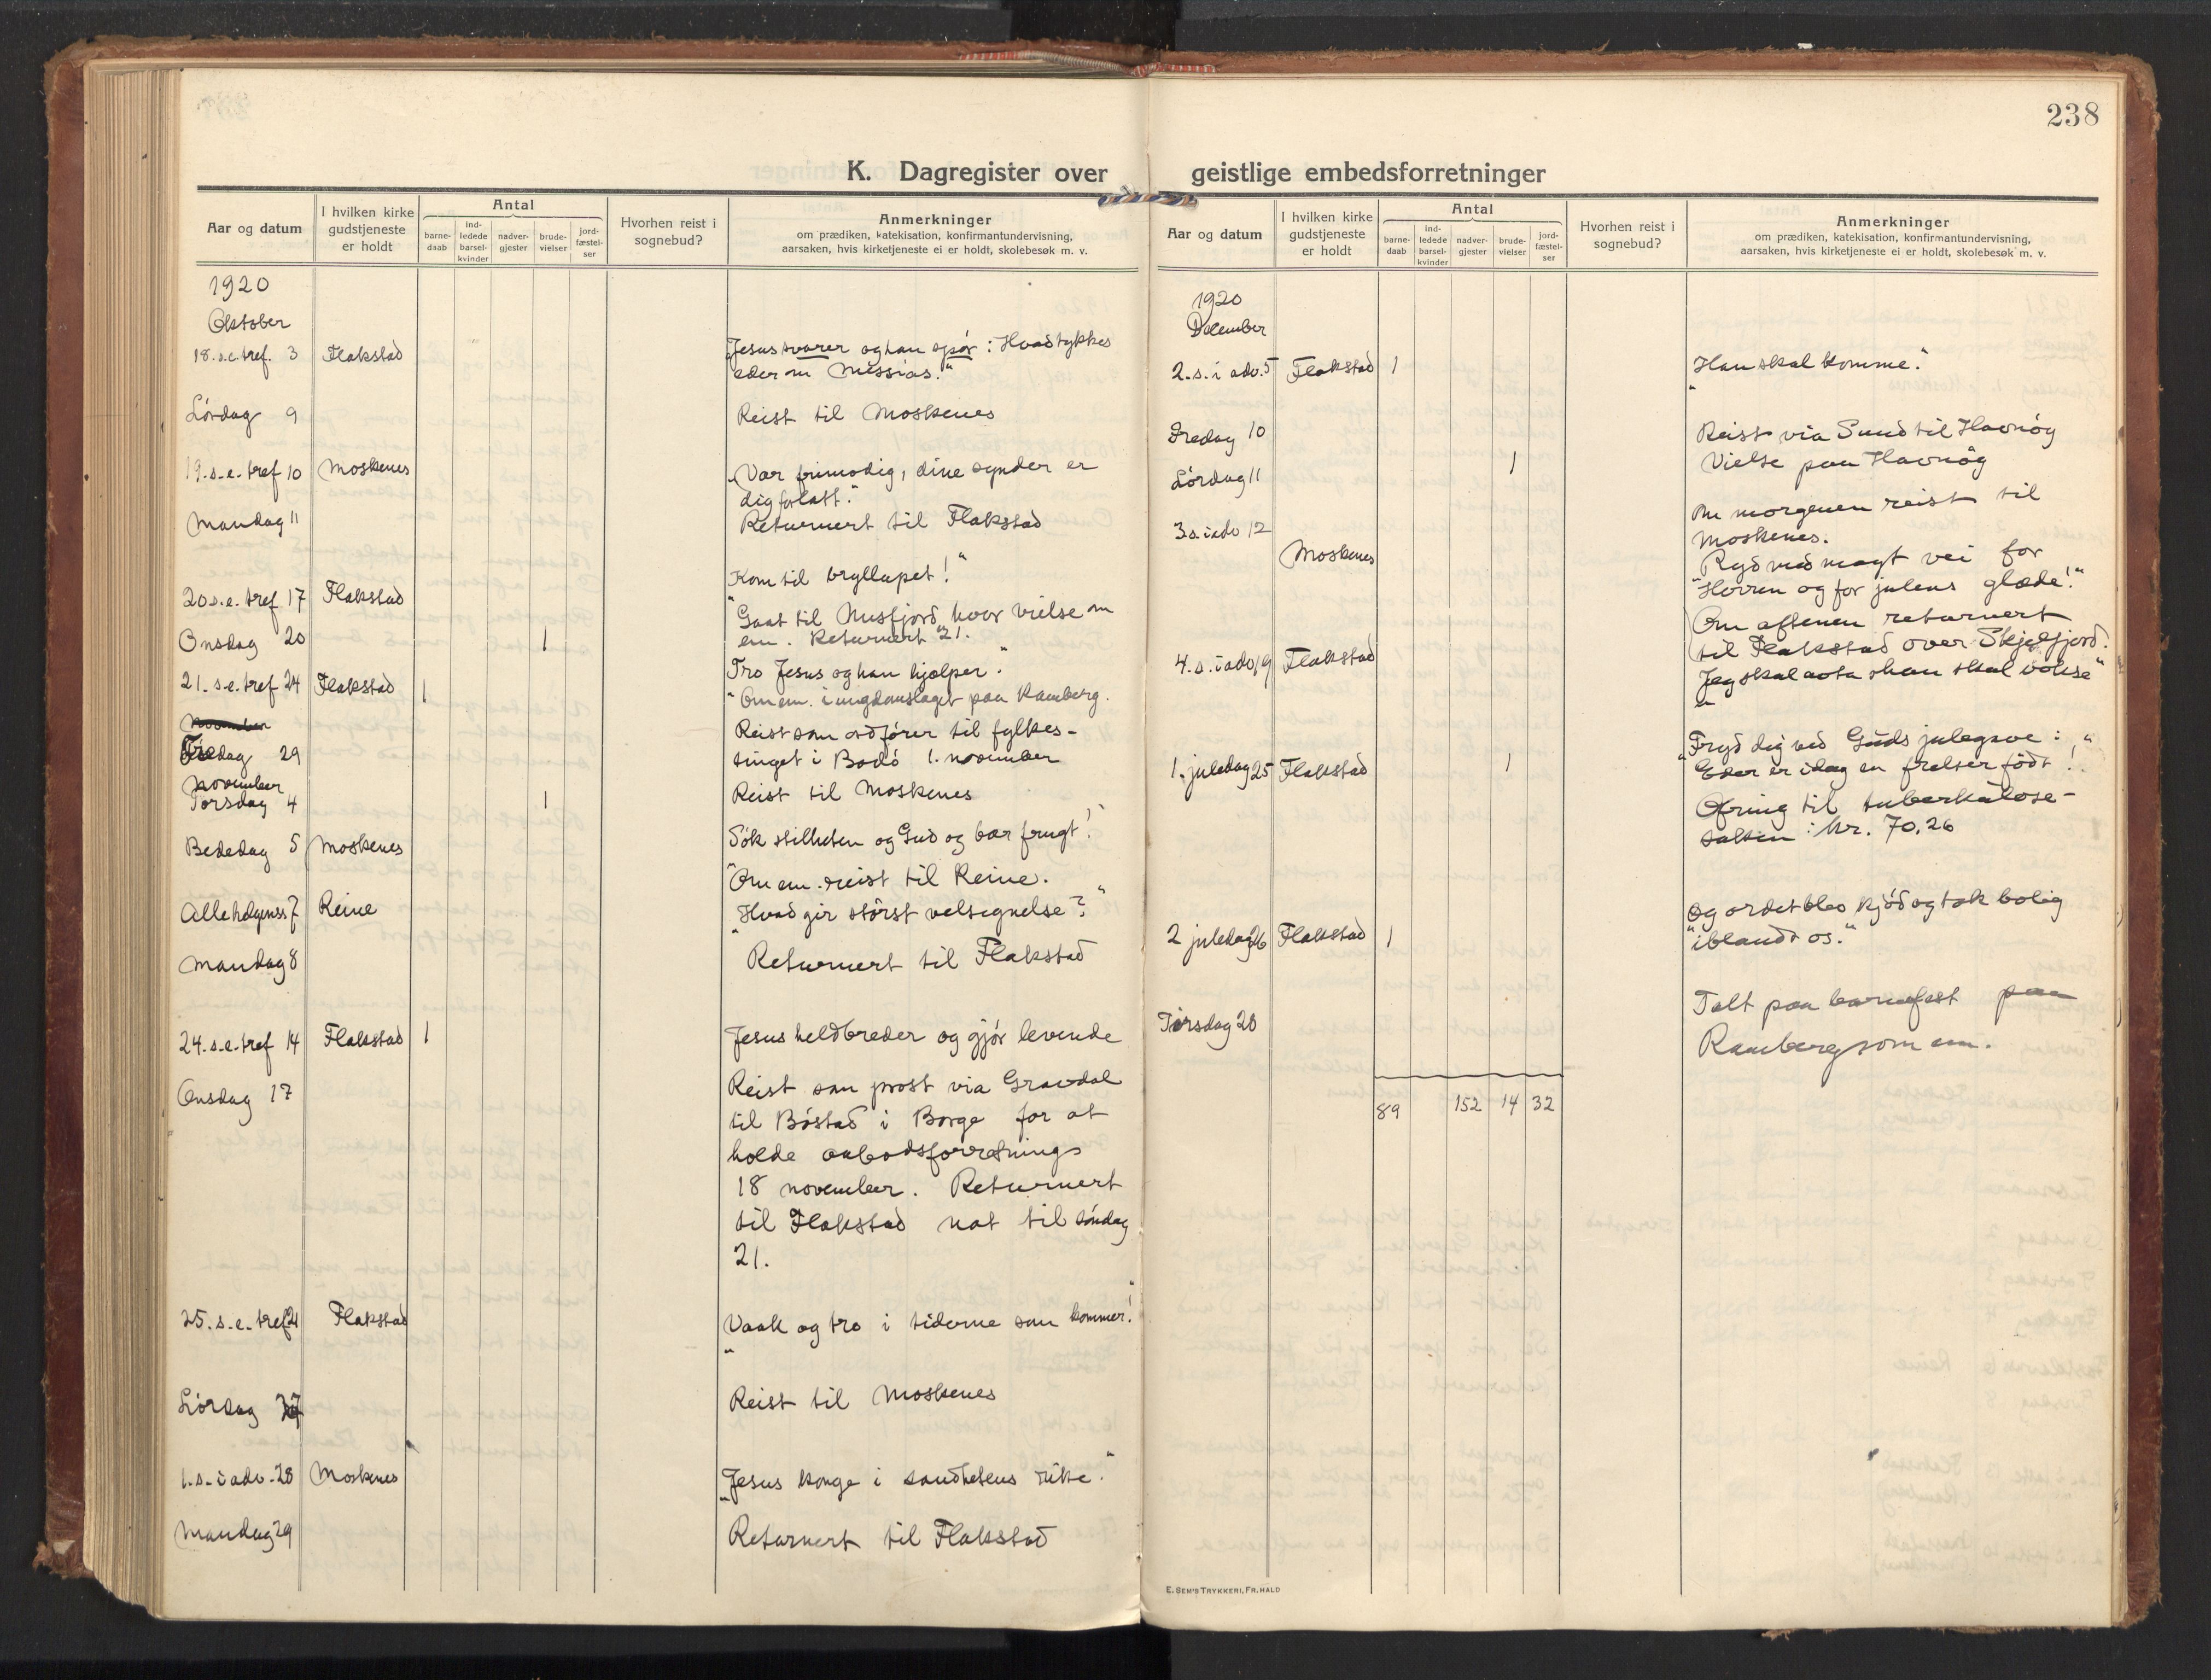 238
K. Dagregister over geistlige embedsforretninger
Aar og datum
I hvilken kirke
gudstjeneste
er holdt
Antal
barne-
daab
ind-
ledede
barsel-
kvinder
nadver-
gjester
brude-
vielser
jord-
fæstel-
ser
Hvorhen reist i
sognebud?
Anmerkninger
om prædiken, katekisation, konfirmantundervisning,
aarsaken, hvis kirketjeneste ei er holdt, skolebesøk m. v.
1920
Oktober
18. s.e. tref. 3 Flakstad
Jesus svarer og han spör: Hvad tykkes
eder om Messias."
Lördag 9 Reist til Moskenes
19. s. e. tref 10 Moskenes
„Vær frimodig, dine synder er
dig forlatt."
Mandag 11 Returnert til Flakstad
20 s. e. tref 17 Flakstad „Kom til bryllupet!"
Onsdag 20 1 Gaat til Nusfjord hvor vielse om
em. Returnert 21.
21. s. e. tref 24 Flakstad 1 „Tro Jesus og han hjælper."
Om em. i ungdomslaget paa Ramberg.
November
Fredag 29 Reist som ordförer til fylkes-
tinget i Bodö 1. november
November
Torsdag 4 1 Reist til Moskenes
Bededag 5 Moskenes „Sök stilheten og Gud og bær frugt!"
Om em. reist til Reine.
Allehelgenss 7 Reine „Hvad gir störst velsignelse?"
Mandag 8 Returnert til Flakstad
24. s. e. tref 14 Flakstad 1 Jesus helbreder og gjör levende
Onsdag 17 Reist som prost via Gravdal
til Böstad i Borge for at
holde
18 november. Returnert
til Flakstad nat til söndag
21.
25. s. e. tref 21 Flakstad „Vaak og tro i tiderne som kommer!"
Lördag 27 Reist til Moskenes
1. s. i adv. 28 Moskenes „Jesus konge i sandhetens rike."
Mandag 29 Returnert til Flakstad
Aar og datum
I hvilken kirke
gudstjeneste
er holdt
Antal
barne-
daab
ind-
ledede
barsel-
kvinder
nadver-
gjester
brude-
vielser
jord-
fæstel-
ser
Hvorhen reist i
sognebud?
Anmerkninger
om prædiken, katekisation, konfirmantundervisning,
aarsaken, hvis kirketjeneste ei er holdt, skolebesøk m. v.
1920
December
2. s. i adv. 5 Flakstad 1 „Han skal komme."
Fredag 10 Reist via Sund til Havnöy
Lördag 11 1 Vielse paa Havnöy
3 s. i adv 12 Moskenes
Om morgenen reist til
Moskenes.
„Ryd med magt vei for
Herren og for julens glæde!"
Om aftenen returnert
til Flakstad over Skjelfjord.
4. s. i adv. 19 Flakstad „Jeg skal avta o han skal vokse"
1. juledag 25 Flakstad 1 „Fryd dig ved Guds julegave:
Eder er idag en frelser födt!"
Ofring til tuberkulose-
saken: kr. 70,26
2 juledag 26 Flakstad 1 „Og ordet blev kjöd og tok bolig
iblandt os."
Tirsdag 28 Talt paa barnefest paa
Ramberg som em.
89 152 14 32
E. SEM'S TRYKKERI, FR. HALD